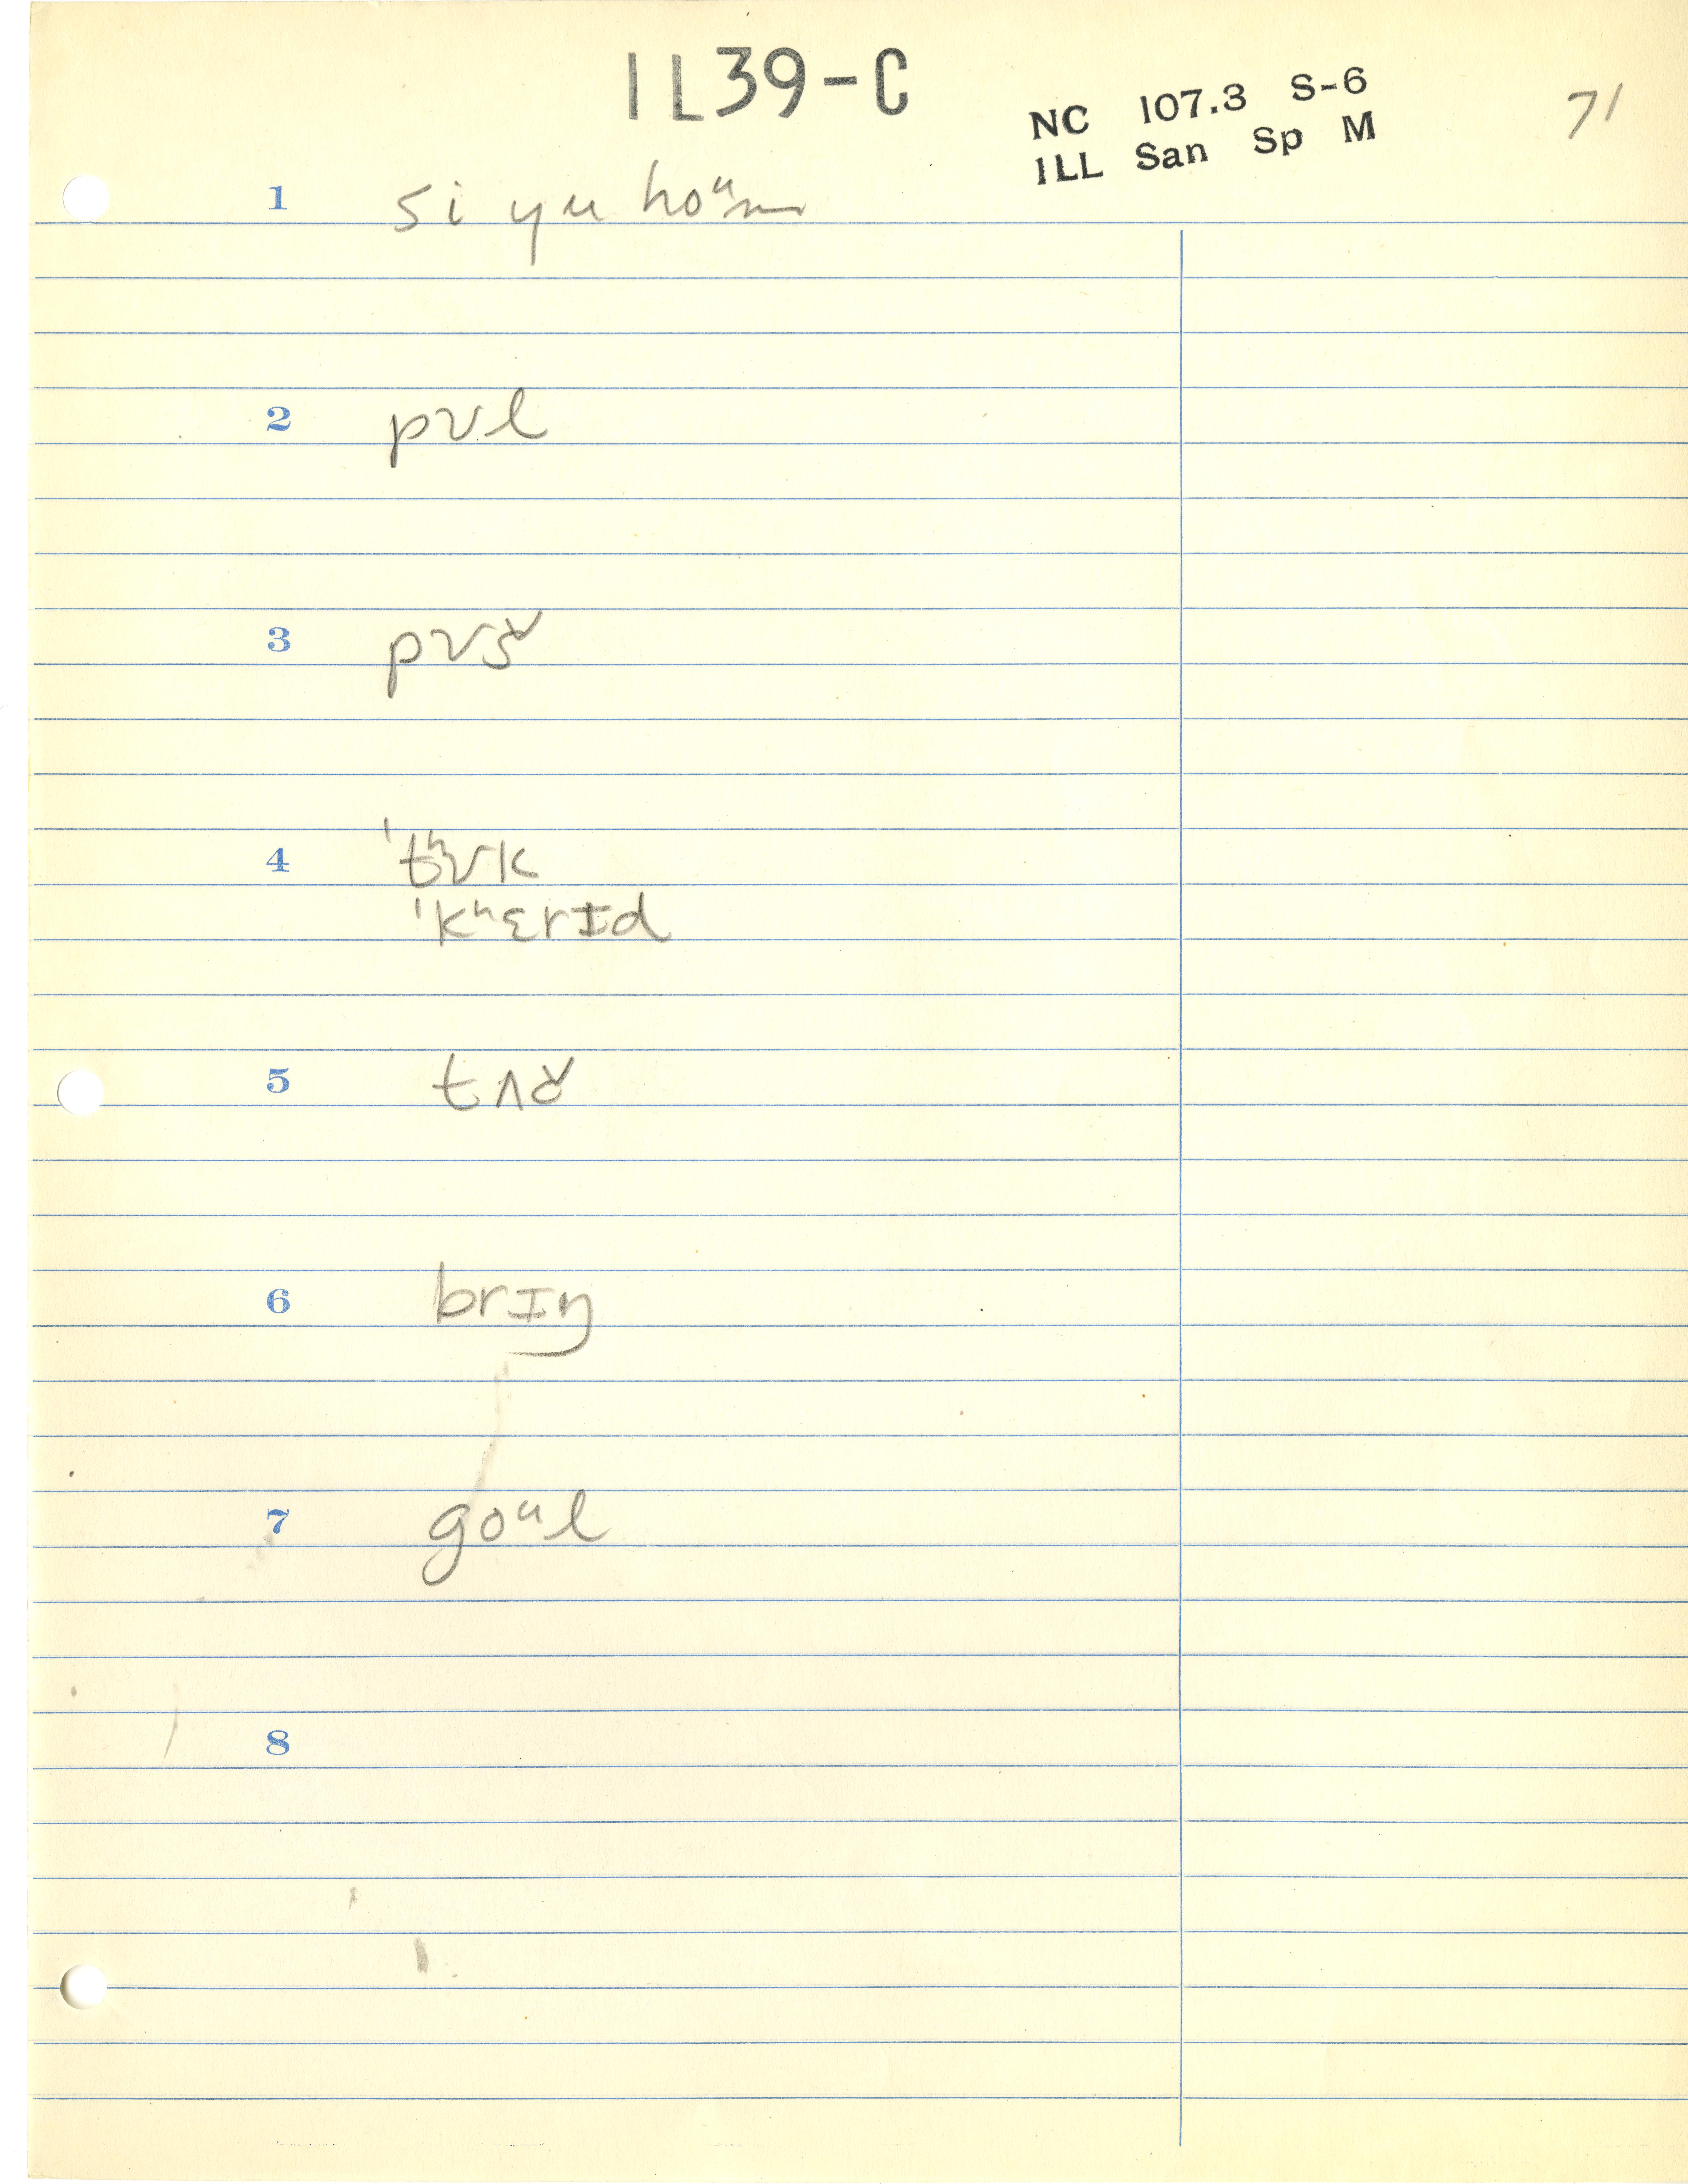 IL39-C
NC 107.3 S-6
ILL San Sp M
71
1 si yu hoᵘm
2 pʊl
3 pʊš
4 ˈtʰʊk
ˈkʰɛrɪd
5 tʌč
6 brɪŋ
7 goᵘl
8